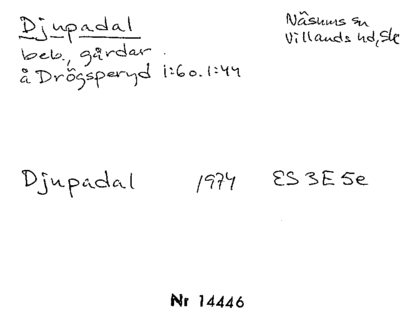 Djupadal
Näsums sn
Villands hd, Sk
beb., gårdar.
å Drögsperyd 1:60. 1:44
Djupadal 1974 ES 3E 5e
Nr 14446